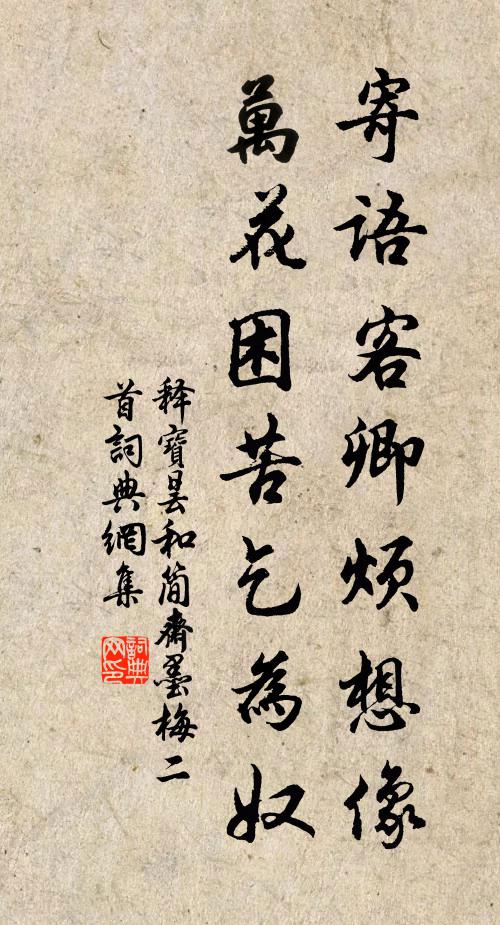 寄語客卿煩想像
萬花困苦乞為奴
釋寶昙和簡齋墨梅二
首詞典網集
詞典
网印